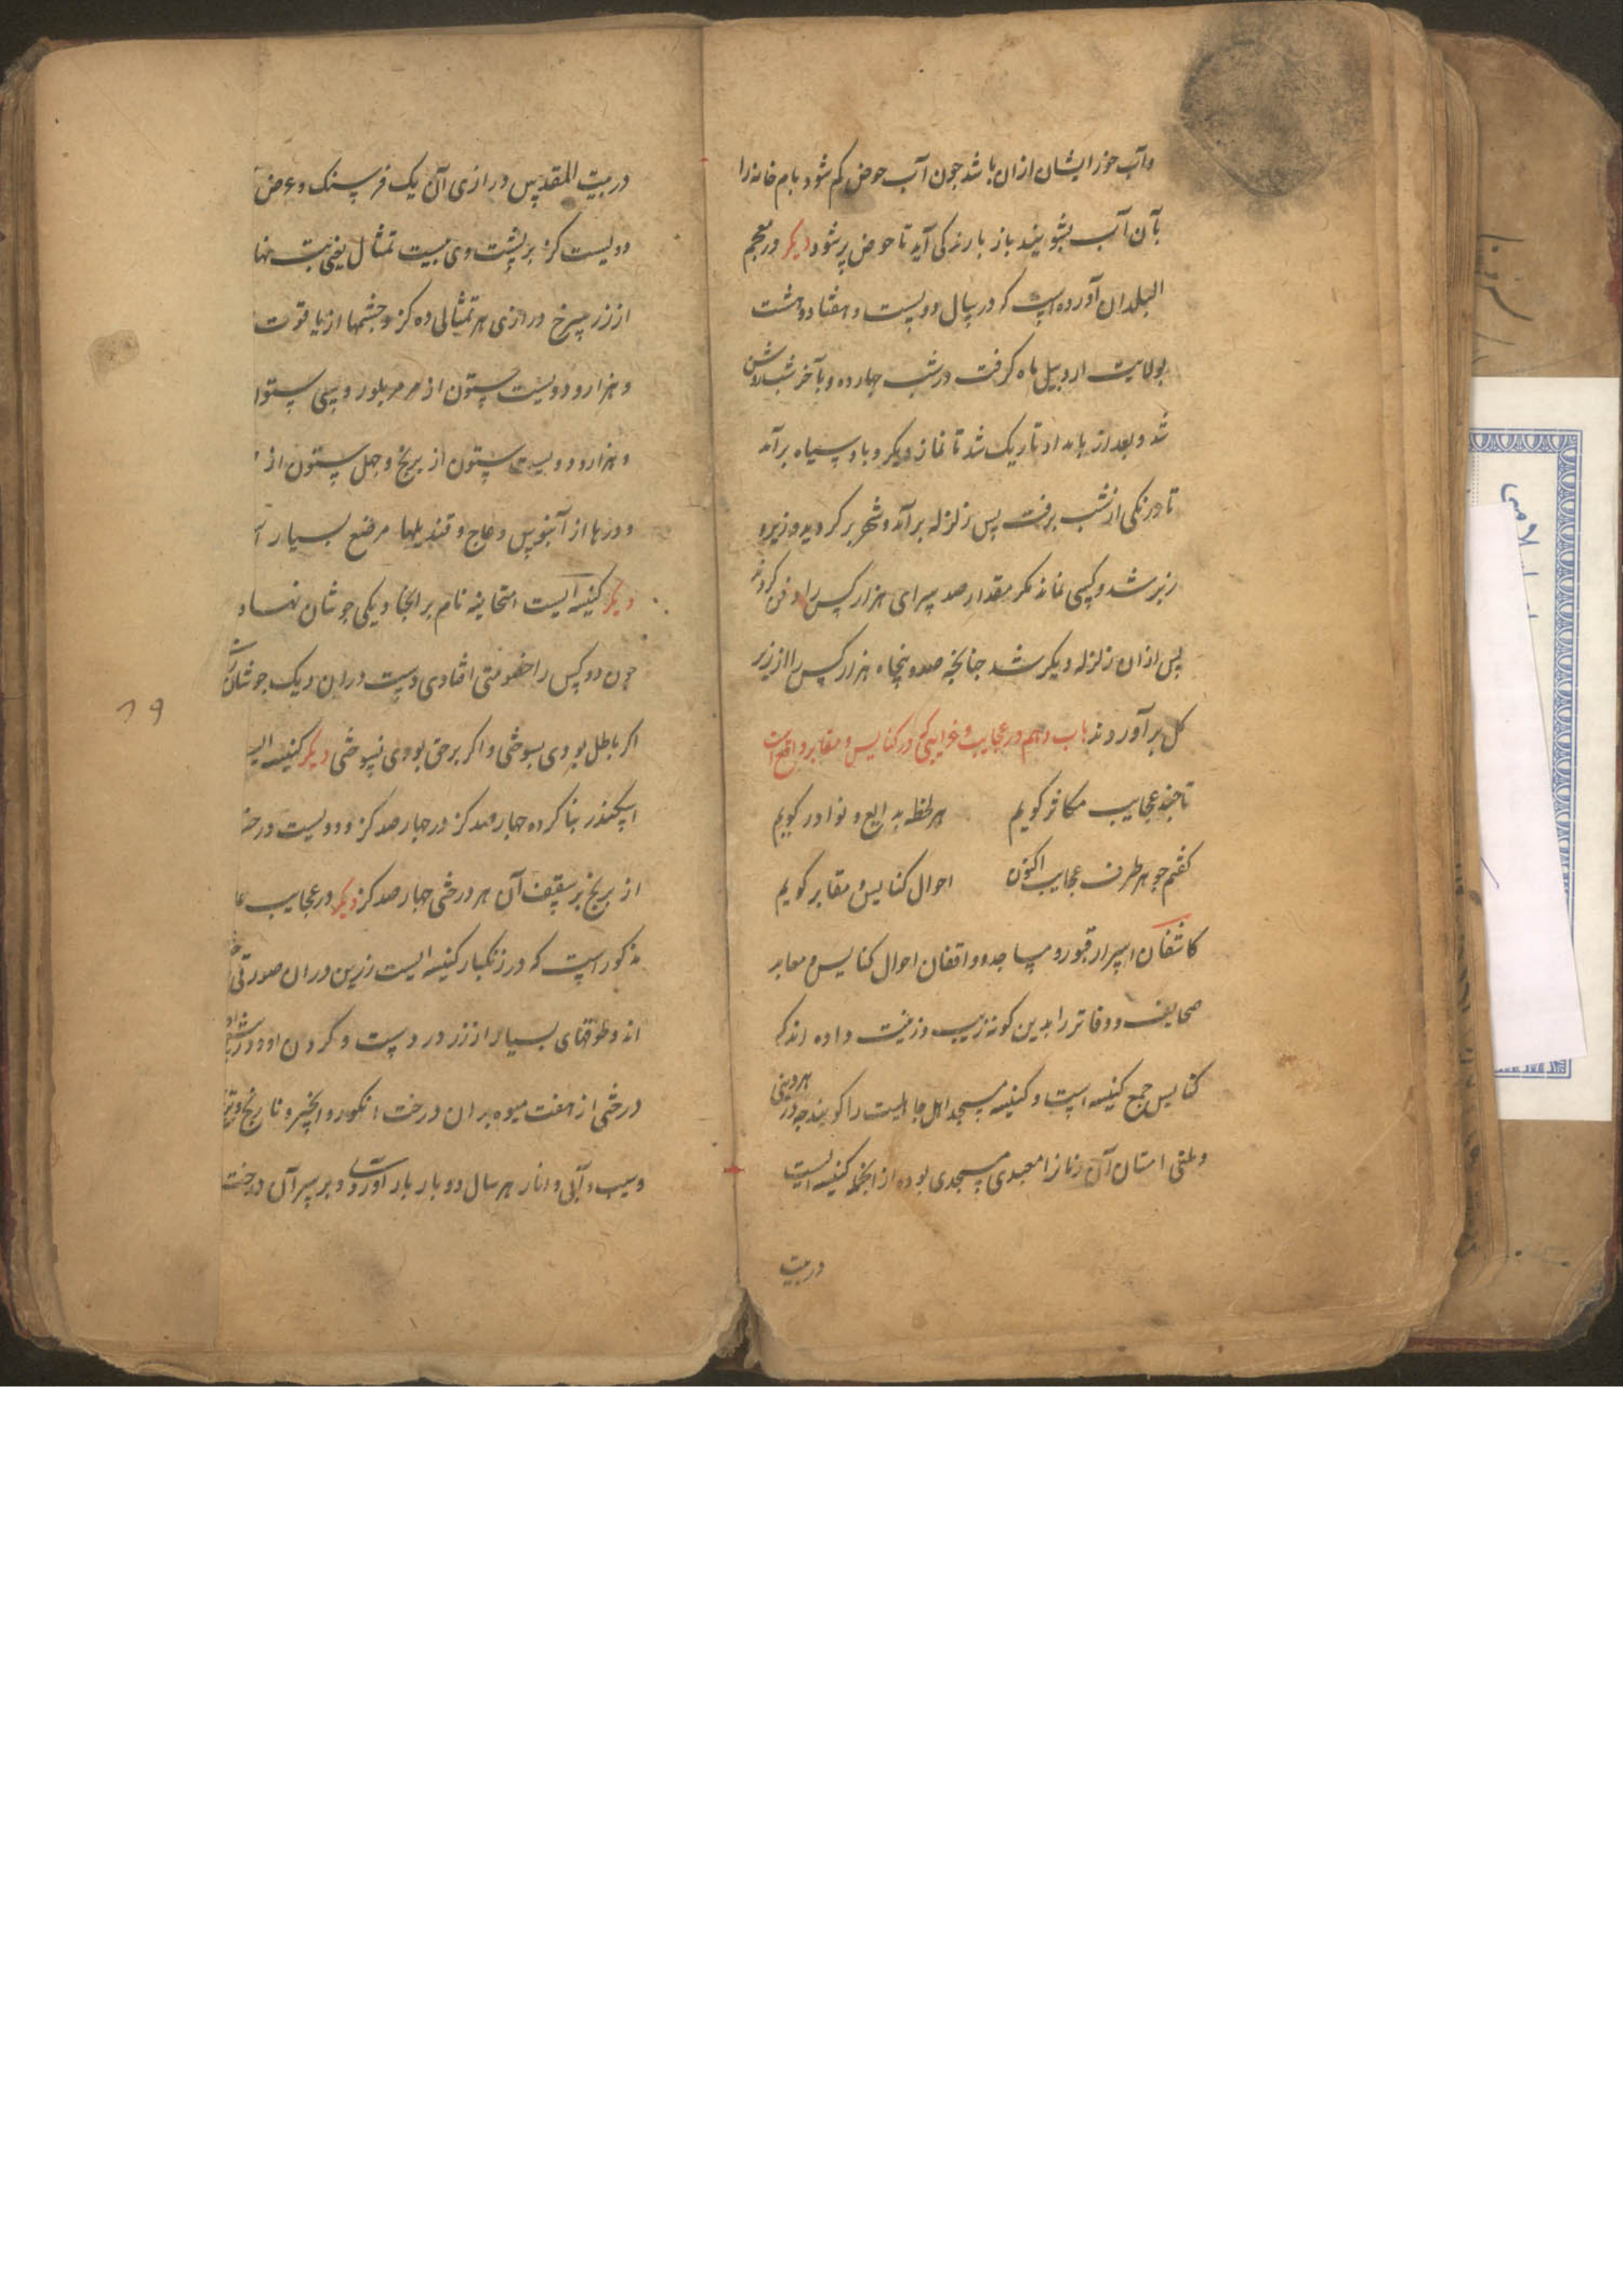 وآب خور ایشان ازان باشد جون آب حوض کم شود بام خانه را
بآن آب بشویند باز بارندکی آید تا حوض پر شود دیکر در معجم
البلدان آورده است که در سال دویست و هفتاد و هشت
بولایت اردبیل ماه کرفت در شب جهارده و بآخر شب روشن
شد و بعد از بامداد تاریک شد تا نماز دیکر و باد سیاه برآمد
تا درنکی از شب برفت پس زلزله برآمد و شهر بر کردید و زیر و
زبر شد و کسی نماند مکر مقدار صد سرای هزار کس را دفن کردند
پس ازان زلزله دیکر شد جنانجه صد و پنجاه هزار کس را از زیر
کل برآوردند باب دهم در عجایب و غرایبی که در کنایس و مقابر واقع است
تا جند عجایب مکاثر کویم هر لحظه بدایع و نوادر کویم
کفتم جو هر طرف عجایب اکنون احوال کنایس و مقابر کویم
کاشفان اسرار قبور و مساجد و واقفان احوال کنایس و معابر
صحایف و دفاتر را بدین کونه زیب و زینت داده اند که
کنایس جمع کنیسه است و کنیسه مسجد اهل جاهلیت را کویند جه در هر دینی
و ملتی امتان آن زمانرا معبدی و مسجدی بوده از انجمله کنیسه ایست
در بیت
در بیت المقدس درازی آن یک فرسنک و عرض
دویست کز بر پشت وی بیست تمثال یعنی بت
از زر سرخ درازی هر تمثالی ده کز و جشمها از یاقوت
و هزار و دویست ستون از مرمر بلور و سی
و هزار و دویست ستون از برنج و جهل ستون از
و درها از آبنوس و عاج و قندیلها مرصع بسیار
دیکر کنیسه ایست امتحانیه نام بر انجا دیکی جوشان نهاده
جون دو کس را خصومتی افتادی دست دران دیک جوشان
اکر باطل بودی بسوختی و اکر بر حق بودی نسوختی دیکر کنیسه
اسکندر بنا کرده جهارصد کز در جهارصد کز و دویست
از برنج بر سقف آن هر درختی جهارصد کز دیکر در عجایب
مذکور است که در زنکبار کنیسه ایست زرین دران صورتی
اند و طوقهای بسیار از زر در دست و کردن او
درختی از هفت میوه بران درخت انکور و انجیر و نارنج و
و سیب و آبی و انار هر سال دو بار بار آورد و بر سر آن درخت